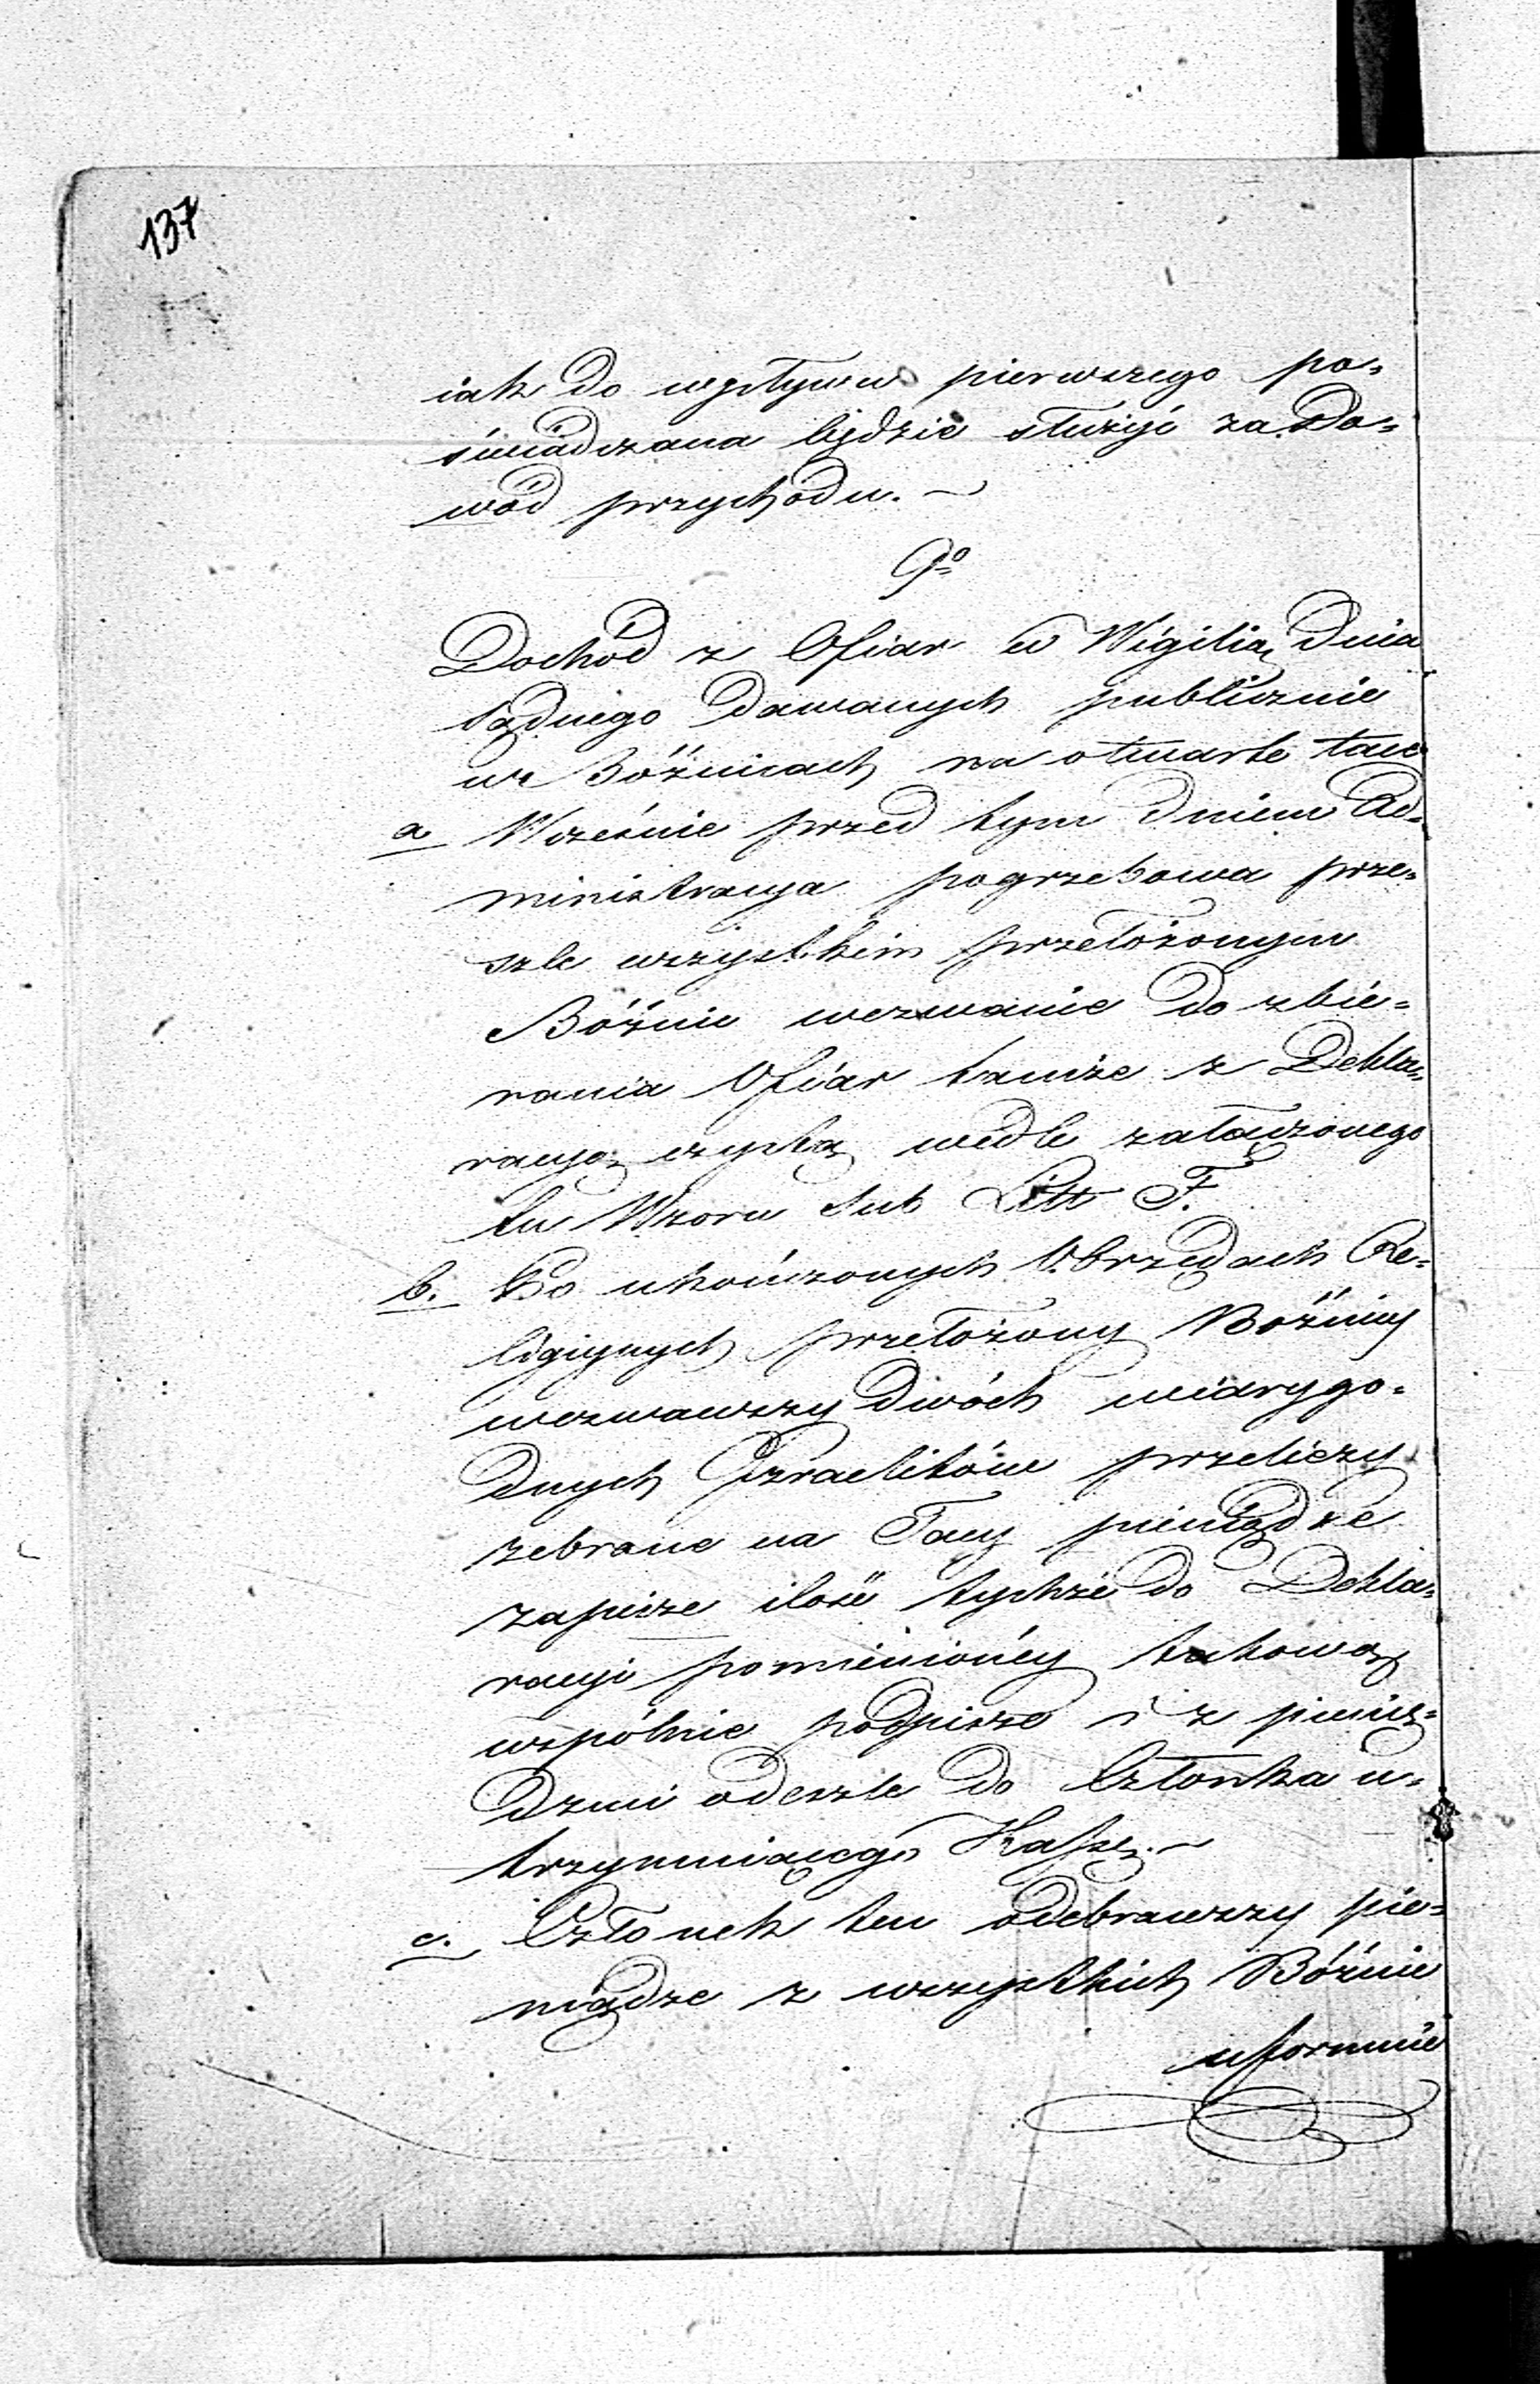 137
iak do wpływu pierwszego po=
świadczana będzie służyć za Do=
wód przychodu. ~
9º
Dochód z Ofiar w Wigilią Dnia
Sądnego dawanych publicznie
w Bóżnicach na otwarte tace
a Wcześnie przed tym dniem Ad=
ministracya pogrzebowa prze=
szle wszystkim przełożonym
Bóżnic wezwanie do zbie=
rania Ofiar tamże z Dekla=
racyą czystą wedle załączonego
tu Wzoru sub Litt F.
b. Po ukończonych Obrzędach Re=
ligijnych przełożony Bóżnicy
wezwawszy dwóch wiarygo=
dnych Izraelitów przeliczy
zebrane na Tacy pieniądze
zapisze ilość tychże do Dekla=
racyi pomienionéy takową
wspólnie podpisze i z pienię=
dzmi odeszle do Członka u=
trzymuiącego Kassę. ~
c. Członek ten odebrawszy pie=
niądze z wszystkich Bóżnic
uformuie